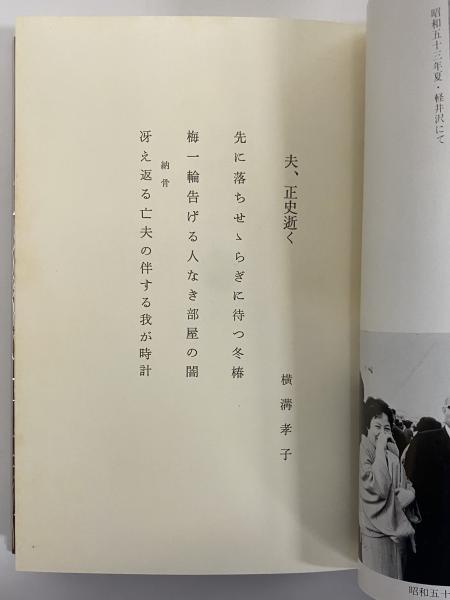 昭和五十三年夏・軽井沢にて
夫、正史逝く
横溝孝子
先に落ちせゝらぎに待つ冬椿
梅一輪告げる人なき部屋の闇
納骨
冴え返る亡夫の伴する我が時計
昭和五十